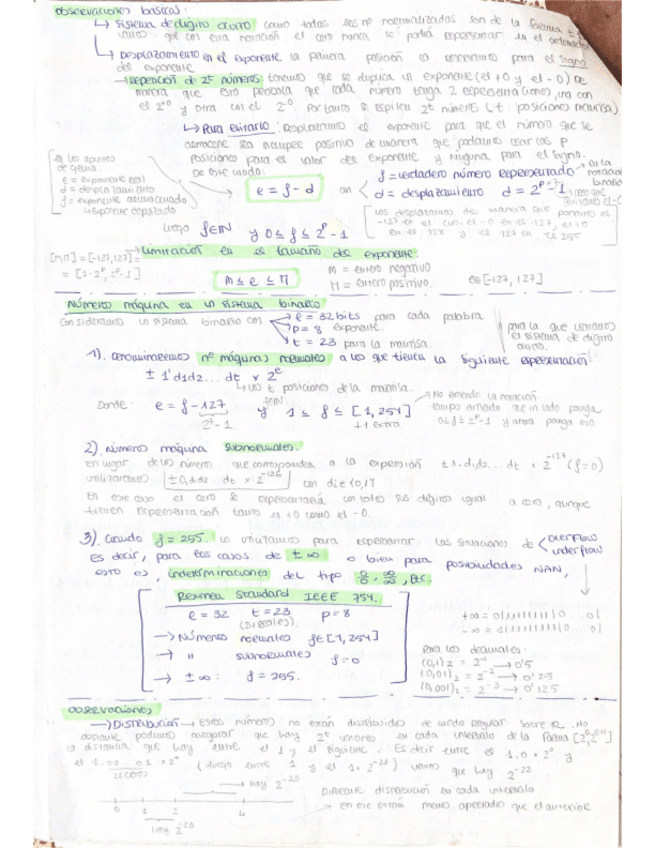 observaciones básicas:
↳ Sistema de dígito oculto como todos los nº normalizados son de la forma ±
que con esta notación el cero nunca se podrá representar en el ordenador
↳ Desplazamiento en el exponente la primera posición la para el signo
del exponente
→ Repetición de 2^t números: tenemos que se duplica un exponente (el +0 y el -0) De
manera que esto provoca que cada número tenga 2 representaciones, una con
el 2^+0 y otra con el 2^-0. Por tanto se repiten 2^t números (t: posiciones mantisa).
↳ Para evitarlo: desplazamos el exponente para que el número que se
almacene sea siempre positivo de manera que podamos usar las p
posiciones para el valor del exponente y ninguna para el signo.
De este modo:
en los apuntes
de
e = exponente real
d = desplazamiento
f = exponente almacenado
↳ exponente desplazado
e = f - d con
f = verdadero número representado → en la notación binaria
d = desplazamiento d = 2^p-1 - 1
los desplazamos de manera que ponemos el
-127 en el el -0 en el 127, el +0
en el 128 y el 127 en el 255
luego f∈ℕ y 0 ≤ f ≤ 2^p - 1
→ Limitación en el tamaño del exponente:
[m,M] = [-127,127] =
m ≤ e ≤ M
m = entero negativo
M = entero positivo.
e∈[-127, 127]
Número máquina en un sistema binario
Consideramos un sistema binario con
l = 32 bits para cada palabra
p = 8 exponente
t = 23 para la mantisa
para la que usamos
el sistema de dígito
oculto.
1). Denominaremos nº máquinas normales a los que tienen la siguiente representación:
± 1'd1d2... dt × 2^e
↳ las t posiciones de la mantisa.
Donde: e = f - 127 y f∈ℕ 1 ≤ f ≤ [1, 254]
+1 extra
→ No entiendo la notación
tampoco entiendo que un lado ponga
0 ≤ f ≤ 2^p - 1 y ahora ponga eso
2) Número máquina subnormales.
En lugar de los números que corresponden a la expresión ± 1.d1d2... dt × 2^-127 (f=0)
utilizaremos ± 0,d1d2... dt × 2^-126 con di∈{0,1}
En este caso el cero se representará con todos sus dígitos igual a cero, aunque
tienen representación tanto el +0 como el -0.
3). Cuando f = 255. lo utilizamos para representar las situaciones de
overflow
underflow
Es decir, para los casos de ±∞ o bien para posibilidades NAN,
esto es, indeterminaciones del tipo 0/0, ∞/∞, etc.
Resumen Standard IEEE 754.
l = 32 t = 23 p = 8
→ Números normales f∈[1, 254]
→ " subnormales f = 0
→ ±∞: f = 255.
+∞ = 0|11111111|0 ... 0|
-∞ = 1|11111111|0 ... 0|
Para los decimales:
(0,1)2 = 2^-1 → 0'5
(0,01)2 = 2^-2 → 0'25
(0,001)2 = 2^-3 → 0'125
observaciones
→ Distribución → Estos números no están distribuidos de modo regular sobre ℝ. No
obstante podemos asegurar que hay 2^t valores en cada intervalo de la forma [2^e, 2^e+1]
la distancia que hay entre el 1 y el siguiente. Es decir entre el 1.0 × 2^0 y
el 1.00...01 × 2^0 (luego entre 1 y el 1 + 2^-23) vemos que hay 2^-23
22 ceros
→ hay 2^-23
0 1 2 4
hay 2^-23
Diferente distribución en cada intervalo
→ en este están menos apretados que el anterior